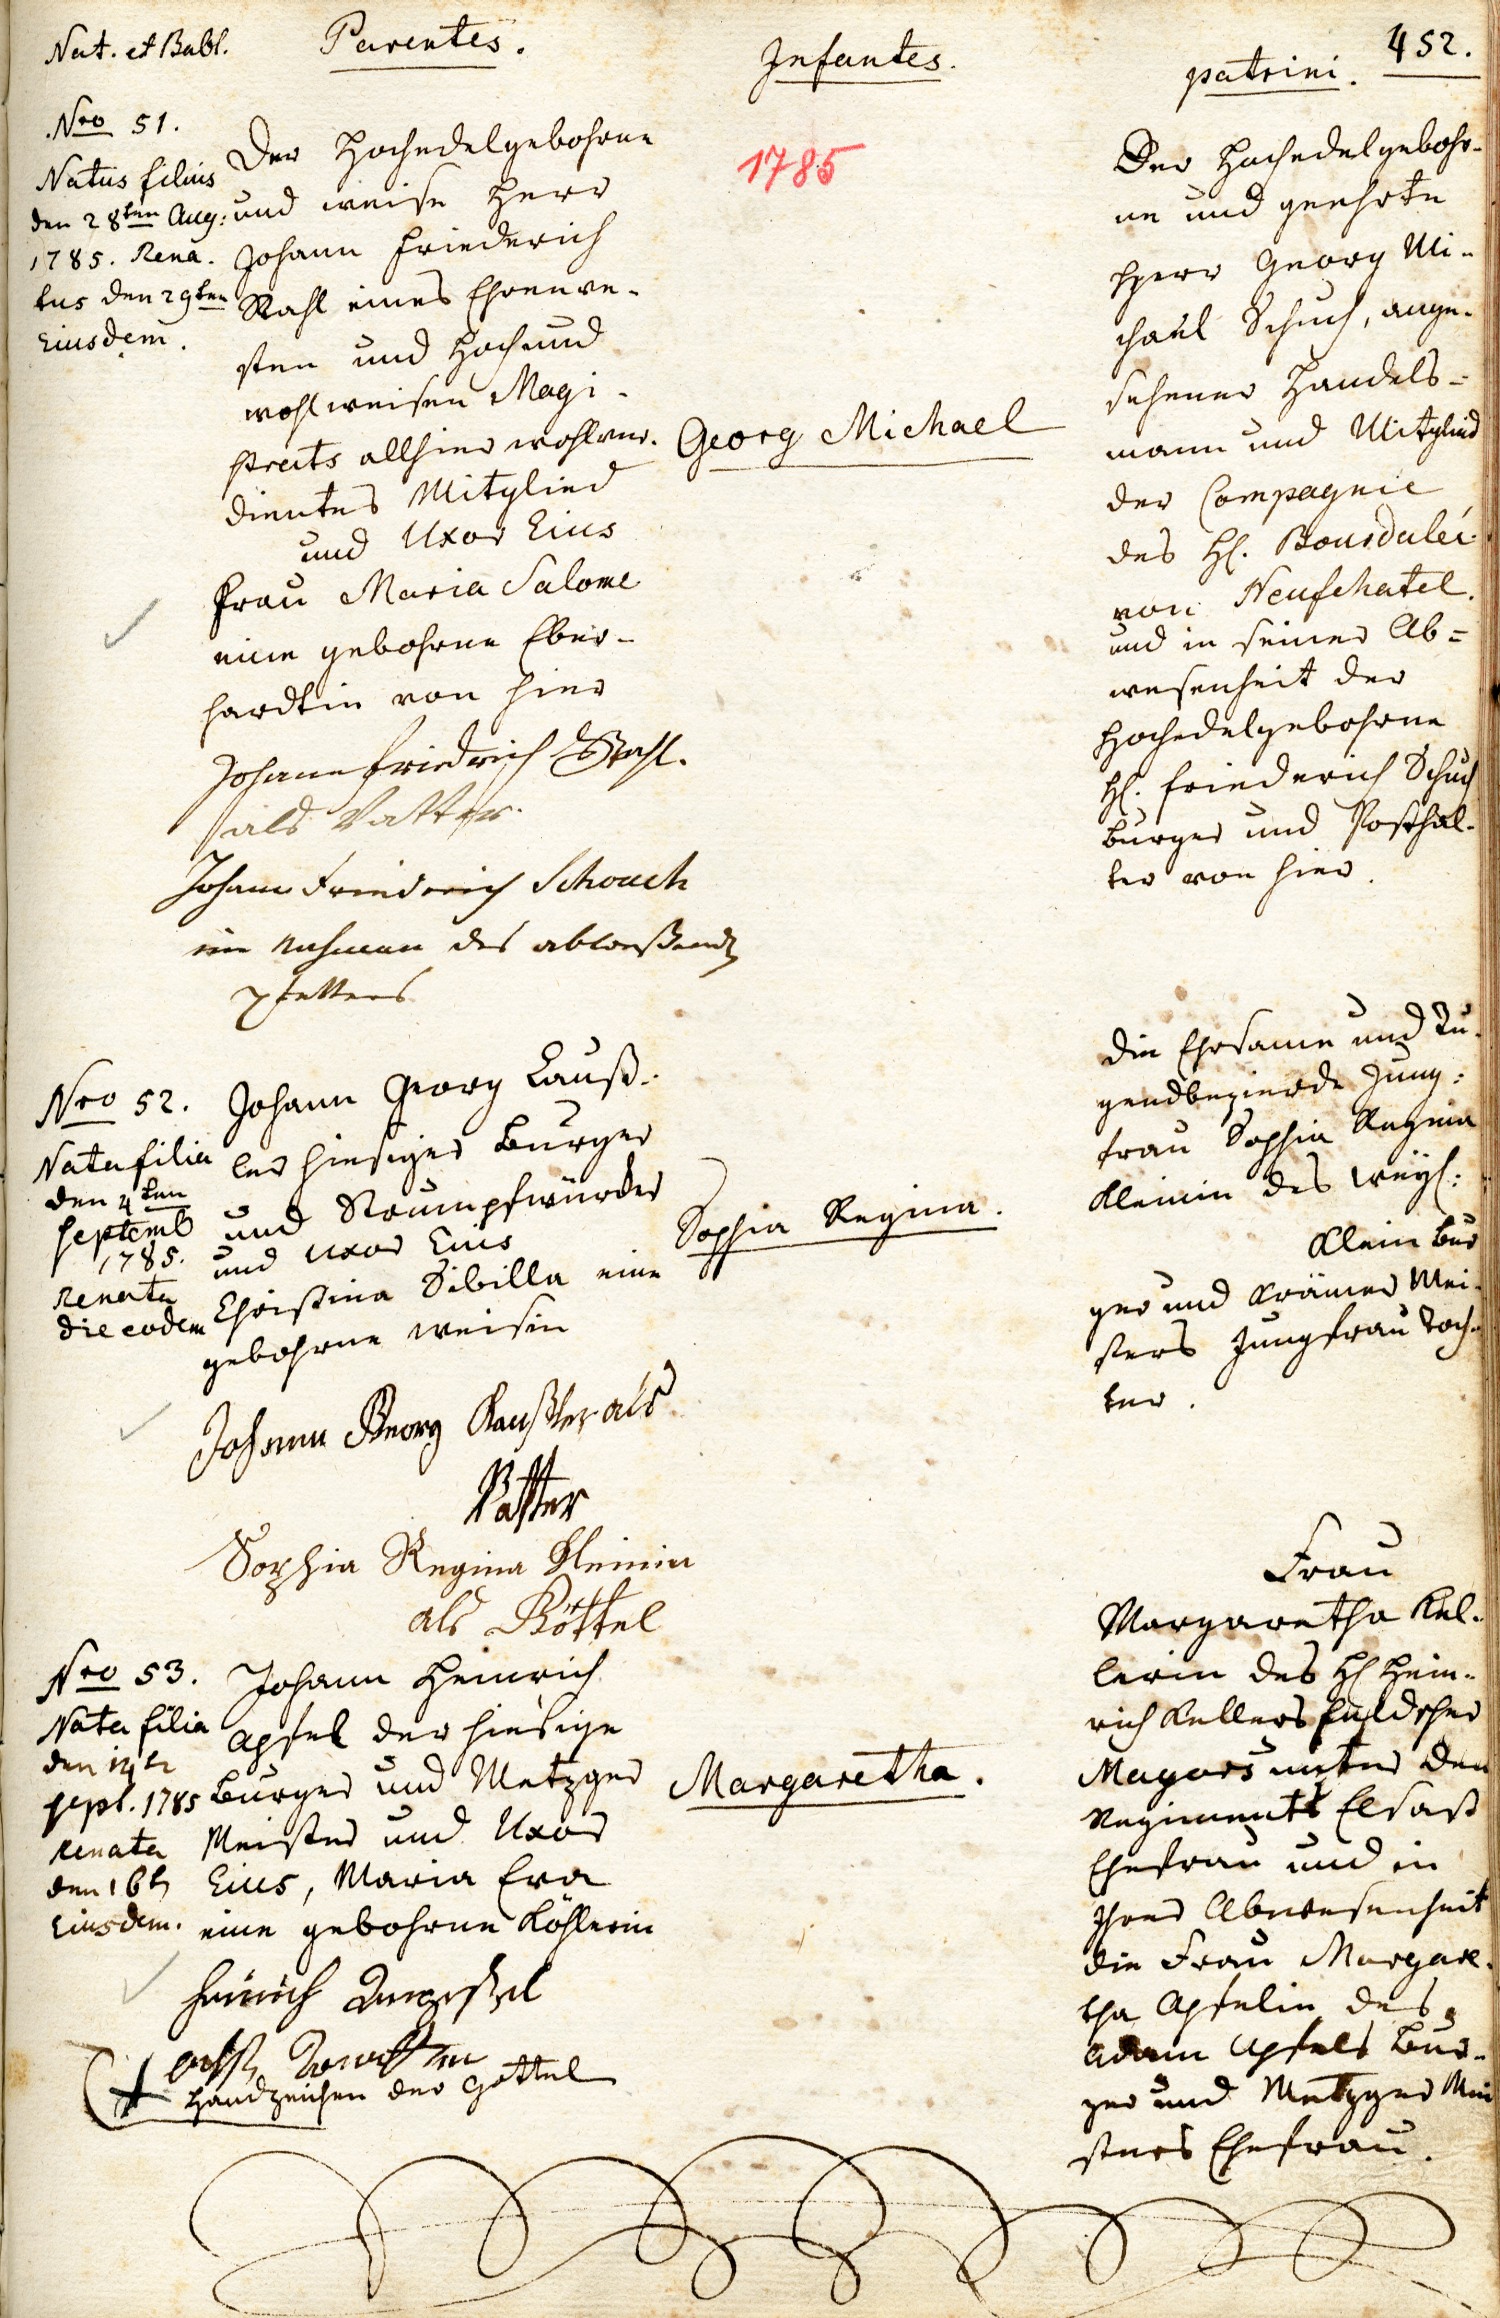 452.
Nat. et Babt.
Parentes.
Infantes.
patrini.
1785
Nro 51.
Natus filius
den 28ten Aug:
1785. Rena-
tus den 29ten
Eiusdem.
Der Hochedelgebohrne
und weise Herr
Johann Friederich
Stahl eines Ehrenve-
sten und Hoch und
wohlweisen Magi-
strats allhier wohlver-
dientes Mitglied
und Uxor Eius
Frau Maria Salome
eine gebohrne Eber-
hardtin von hier
Johann Friedrich Stahl.
als Vatter.
Johann Friederich Schouch
im Nahmen des abweßend
pfetters
Georg Michael
Der Hochedelgebohr-
ne und geehrte
Herr Georg Mi-
chael Schuch, ange-
sehener Handels-
mann und Mitglied
der Compagnie
des H.
von Neufchatel.
und in seiner Ab-
wesenheit der
Hochedelgebohrne
H. Friederich Schuch
burger und Posthal-
ter von hier.
Nro 52.
Nata filia
den 4ten
Septemb
1785.
Renata
die eodem
Johann Georg Lauß-
ler hiesiger Burger
und Strumpfwürcker
und Uxor Eius
Christina Sibilla eine
gebohrne Weisin
Johann Georg als
Vatter
Sophia Regina Kleinin
als Göttel
Sophia Regina.
Die Ehrsame und Tu-
gendbezierde Jung-
frau Sophia Regina
Kleinin des Weyl:
Klein Bur
ger und Krämer Mei-
sters Jungfrau Toch-
ter.
Nro 53.
Nata filia
den 14ten
Sept. 1785
Renata
den 16ten
Eiusdem.
Johann Heinrich
Apfel der hiesige
Burger und Metzger
Meister und Uxor
Eius, Maria Eva
eine gebohrne Köhlerin
Heinrich
Handzeichen der Göttel
Margaretha.
Frau
Margaretha Kel-
lerin des H Hein-
rich Kellers Feldscher
Majors unter dem
Regiments Elsaß
Ehefrau und in
Ihrer Abwesenheit
die Frau Margare-
tha Apfelin des
Adam Apfels Bur-
ger und Metzger Mei
sters Ehefrau.